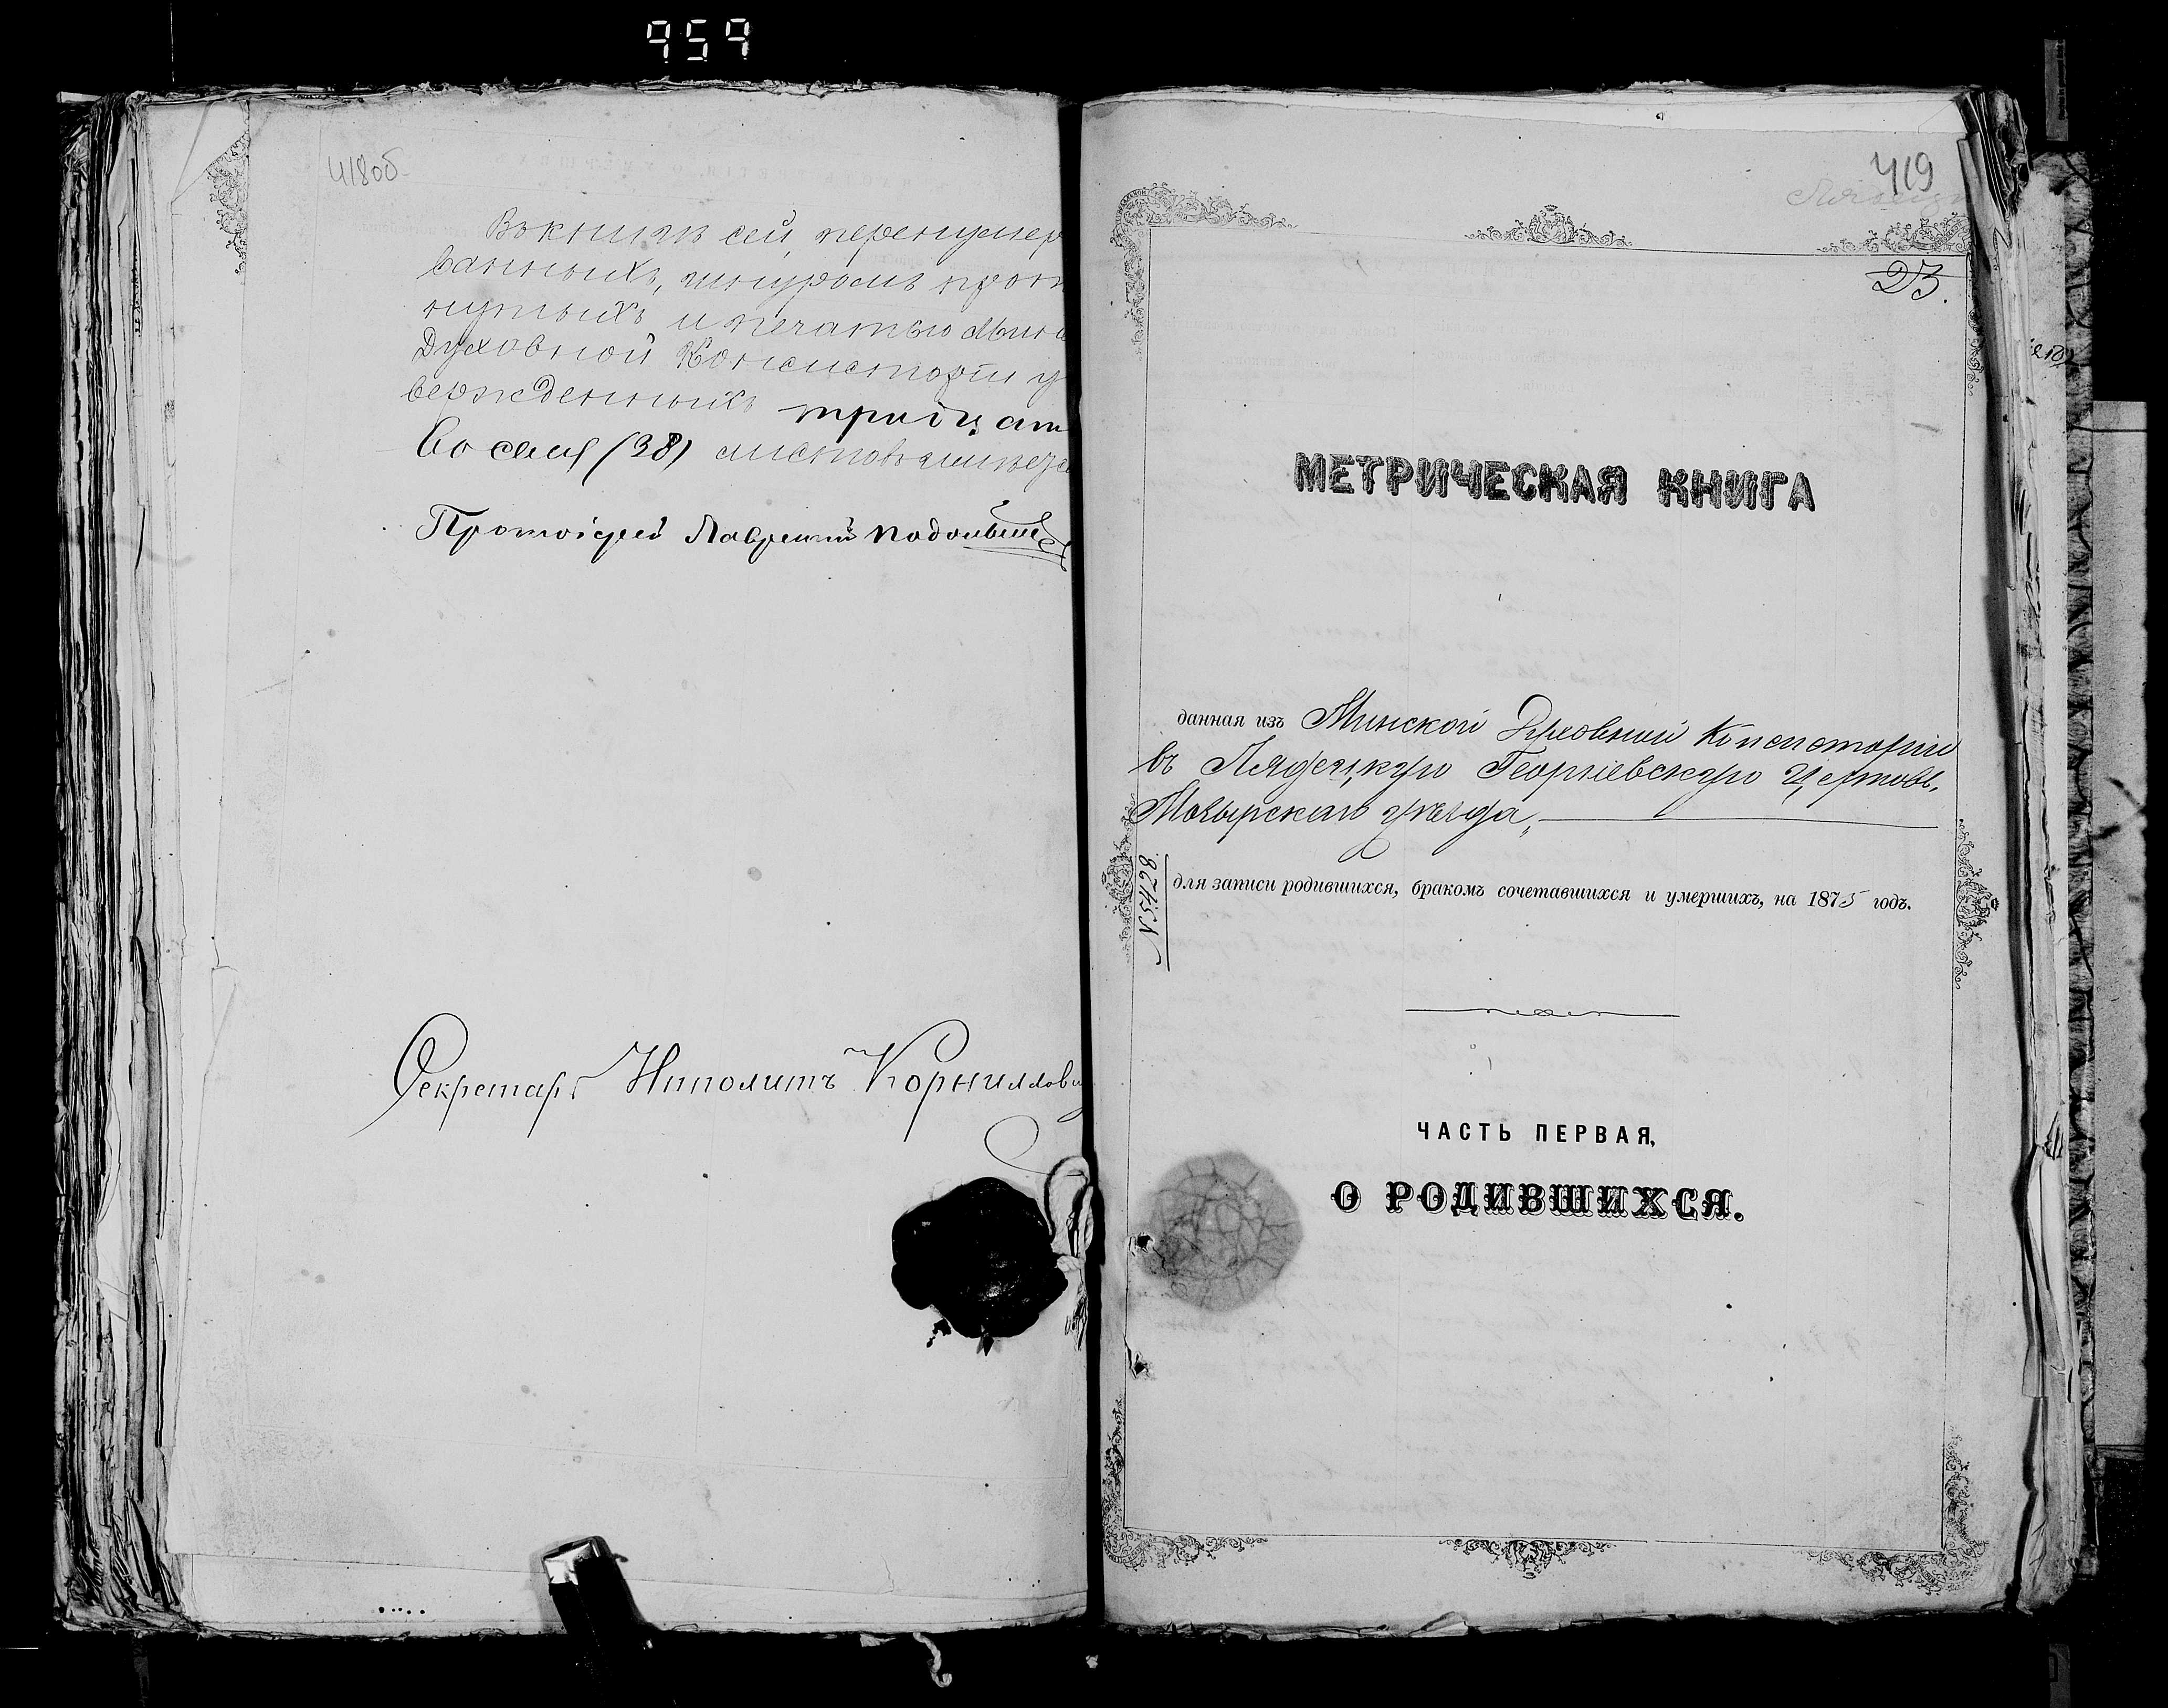 959
418об
Въ книгѣ сей перенумер
ванныхъ, шнуромъ прот
нутыхъ и печатью Минс
Духовной Консисторіи у
вержденныхъ тридцат
восемь (38) листовъ
Протоіерей Лаврентій
Секретарь Ипполитъ Корниллов
419
23.
МЕТРИЧЕСКАЯ КНИГА
данная изъ Минской Духовной Консисторіи
въ Лядецкую Георгіевскую Церковь,
Мозырскаго уѣзда,
для записи родившихся, бракомъ сочетавшихся и умершихъ, на 1875 годъ.
N 5428
ЧАСТЬ ПЕРВАЯ,
О РОДИВШИХСЯ.